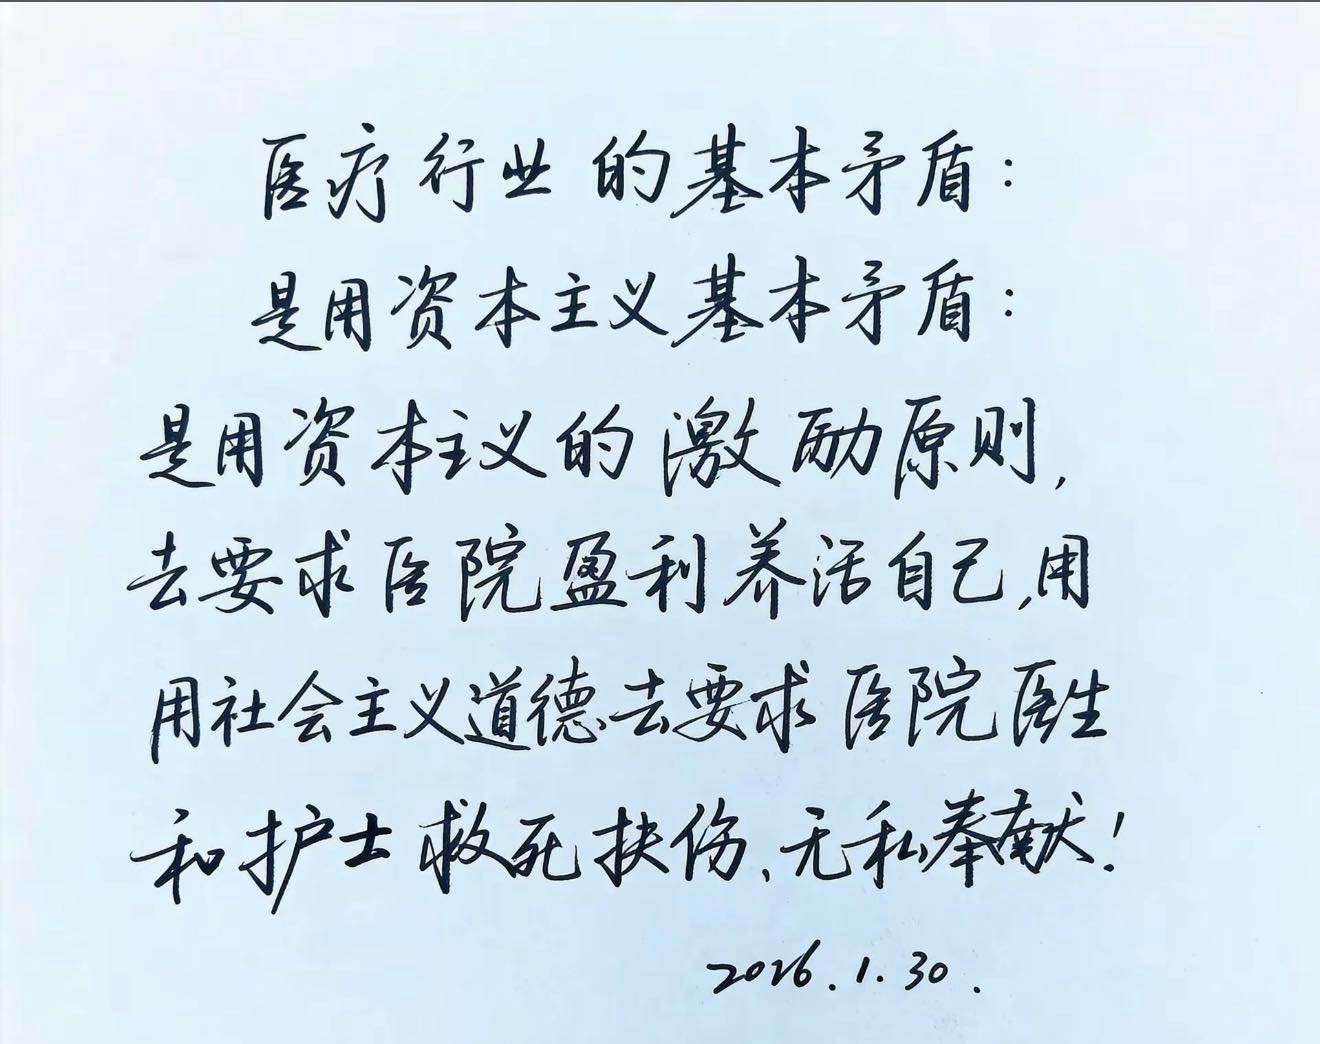 医疗行业的基本矛盾：
是用资本主义基本矛盾：
是用资本主义的激励原则，
去要求医院盈利养活自己，用
用社会主义道德去要求医院医生
和护士救死扶伤、无私奉献！
2026.1.30.